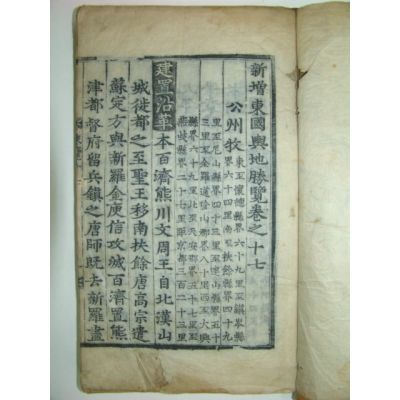 新增東國輿地勝覽卷之十七
公州牧
東至懷德縣界六十九里至鎭岑縣
界六十四里南至扶餘縣界四十九
里至尼山縣界四十三里至連山縣界五十
三里至全羅道山郡界八十里西至大興
縣界六十九里北至天安郡界五十七里至
燕岐縣界二十七里距京都三百二十三里
建置沿革本百濟熊川文周王自北漢山
城徙都之至聖王移南扶餘唐高宗遣
蘇定方與新羅金庾信攻滅百濟置熊
津都督府留兵鎭之唐師旣去新羅盡